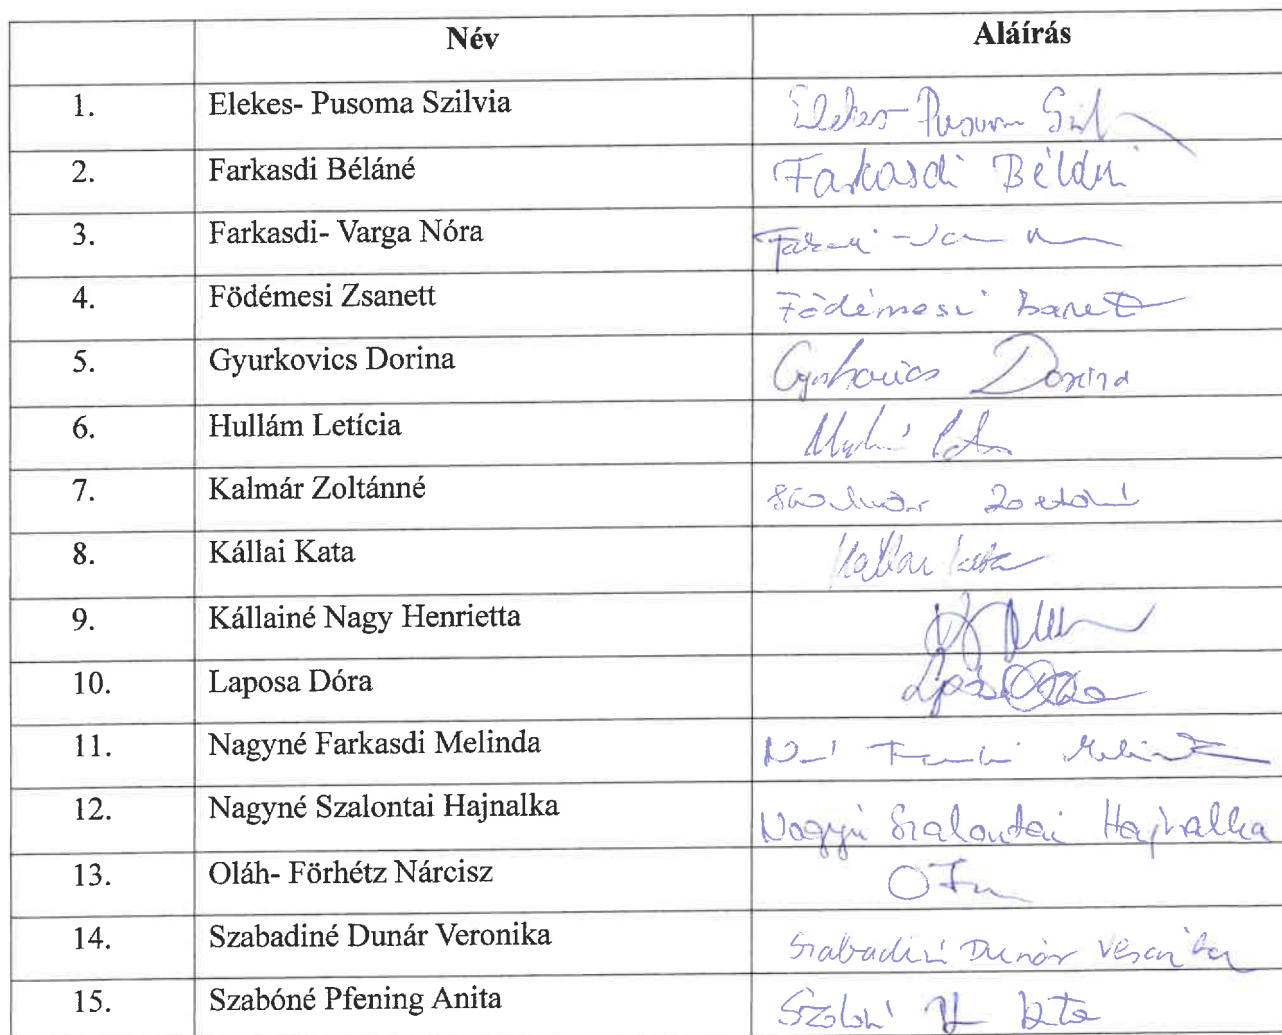 Név Aláírás
1. Elekes- Pusoma Szilvia Elekes-Pusoma
2. Farkasdi Béláné Farkasdi Béláné
3. Farkasdi- Varga Nóra
4. Födémesi Zsanett Födémesi
5. Gyurkovics Dorina Gyurkovics Dorina
6. Hullám Letícia
7. Kalmár Zoltánné
8. Kállai Kata Kállai Kata
9. Kállainé Nagy Henrietta
10. Laposa Dóra
11. Nagyné Farkasdi Melinda
12. Nagyné Szalontai Hajnalka Nagyné Szalontai Hajnalka
13. Oláh- Förhétz Nárcisz
14. Szabadiné Dunár Veronika Szabadiné Dunár Veronika
15. Szabóné Pfening Anita